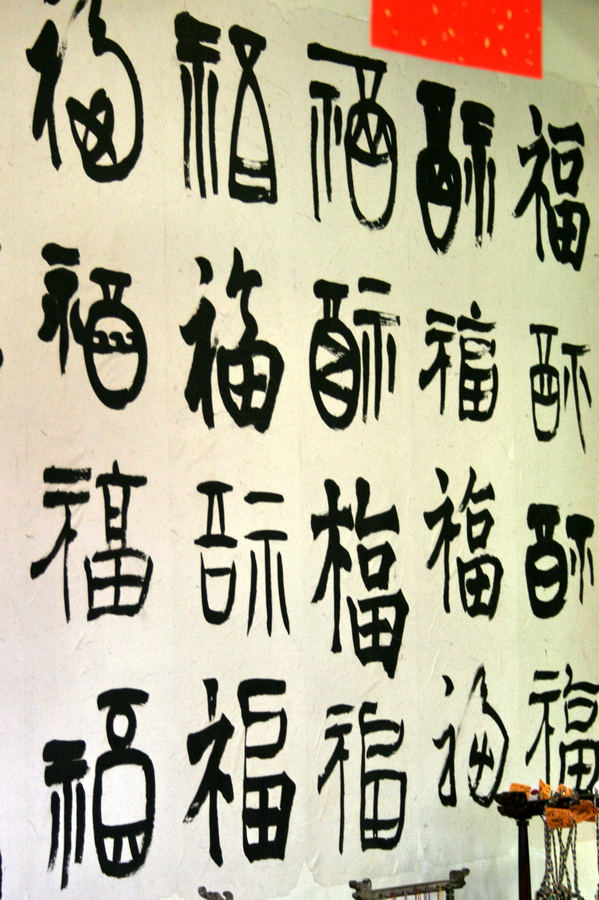 福福福福福
福福福福福
福福福福福
福福福福福